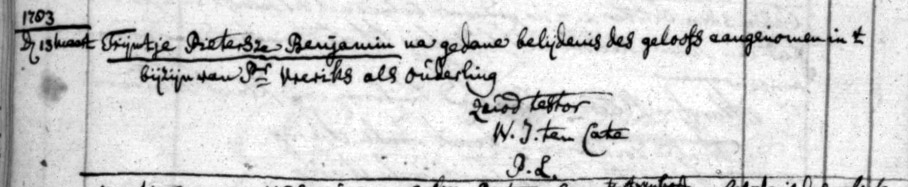 1783
Dg 13 Maart Trijntje Pietersze Benjamin na gedane belijdenis des geloofs aangenomen in t
bijzijn van Pr Vreriks als Ouderling
quod testor
W. J. ten Cate
P. L.